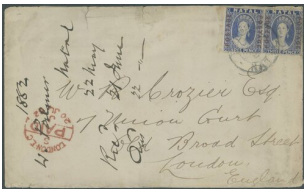 NATAL NATAL
W. R. Crozier Esq
7 Union Court
Broad Street
London
England
1882
Natal
22 May
22 June
LONDON